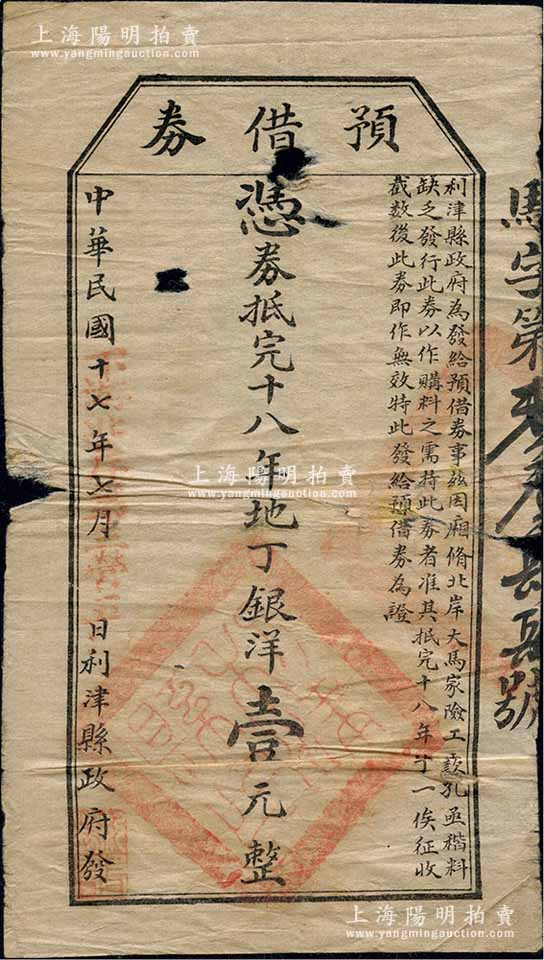 上海陽明拍賣
www.yangmingauction.com
預借券
馬字第
號
利津縣政府為發給預借券事茲因廂脩北岸大馬家險工款孔亟稭料
缺乏發行此券以作購料之需持此券者准其抵完十八年丁一俟征收
截数後此券即作無效特此發給預借券為證
憑券抵完十八年地丁銀洋壹元整
中華民國十七年七月 日利津縣政府發
上海陽明拍賣
www.yangmingauction.com
上海陽明拍賣
www.yangmingauction.com